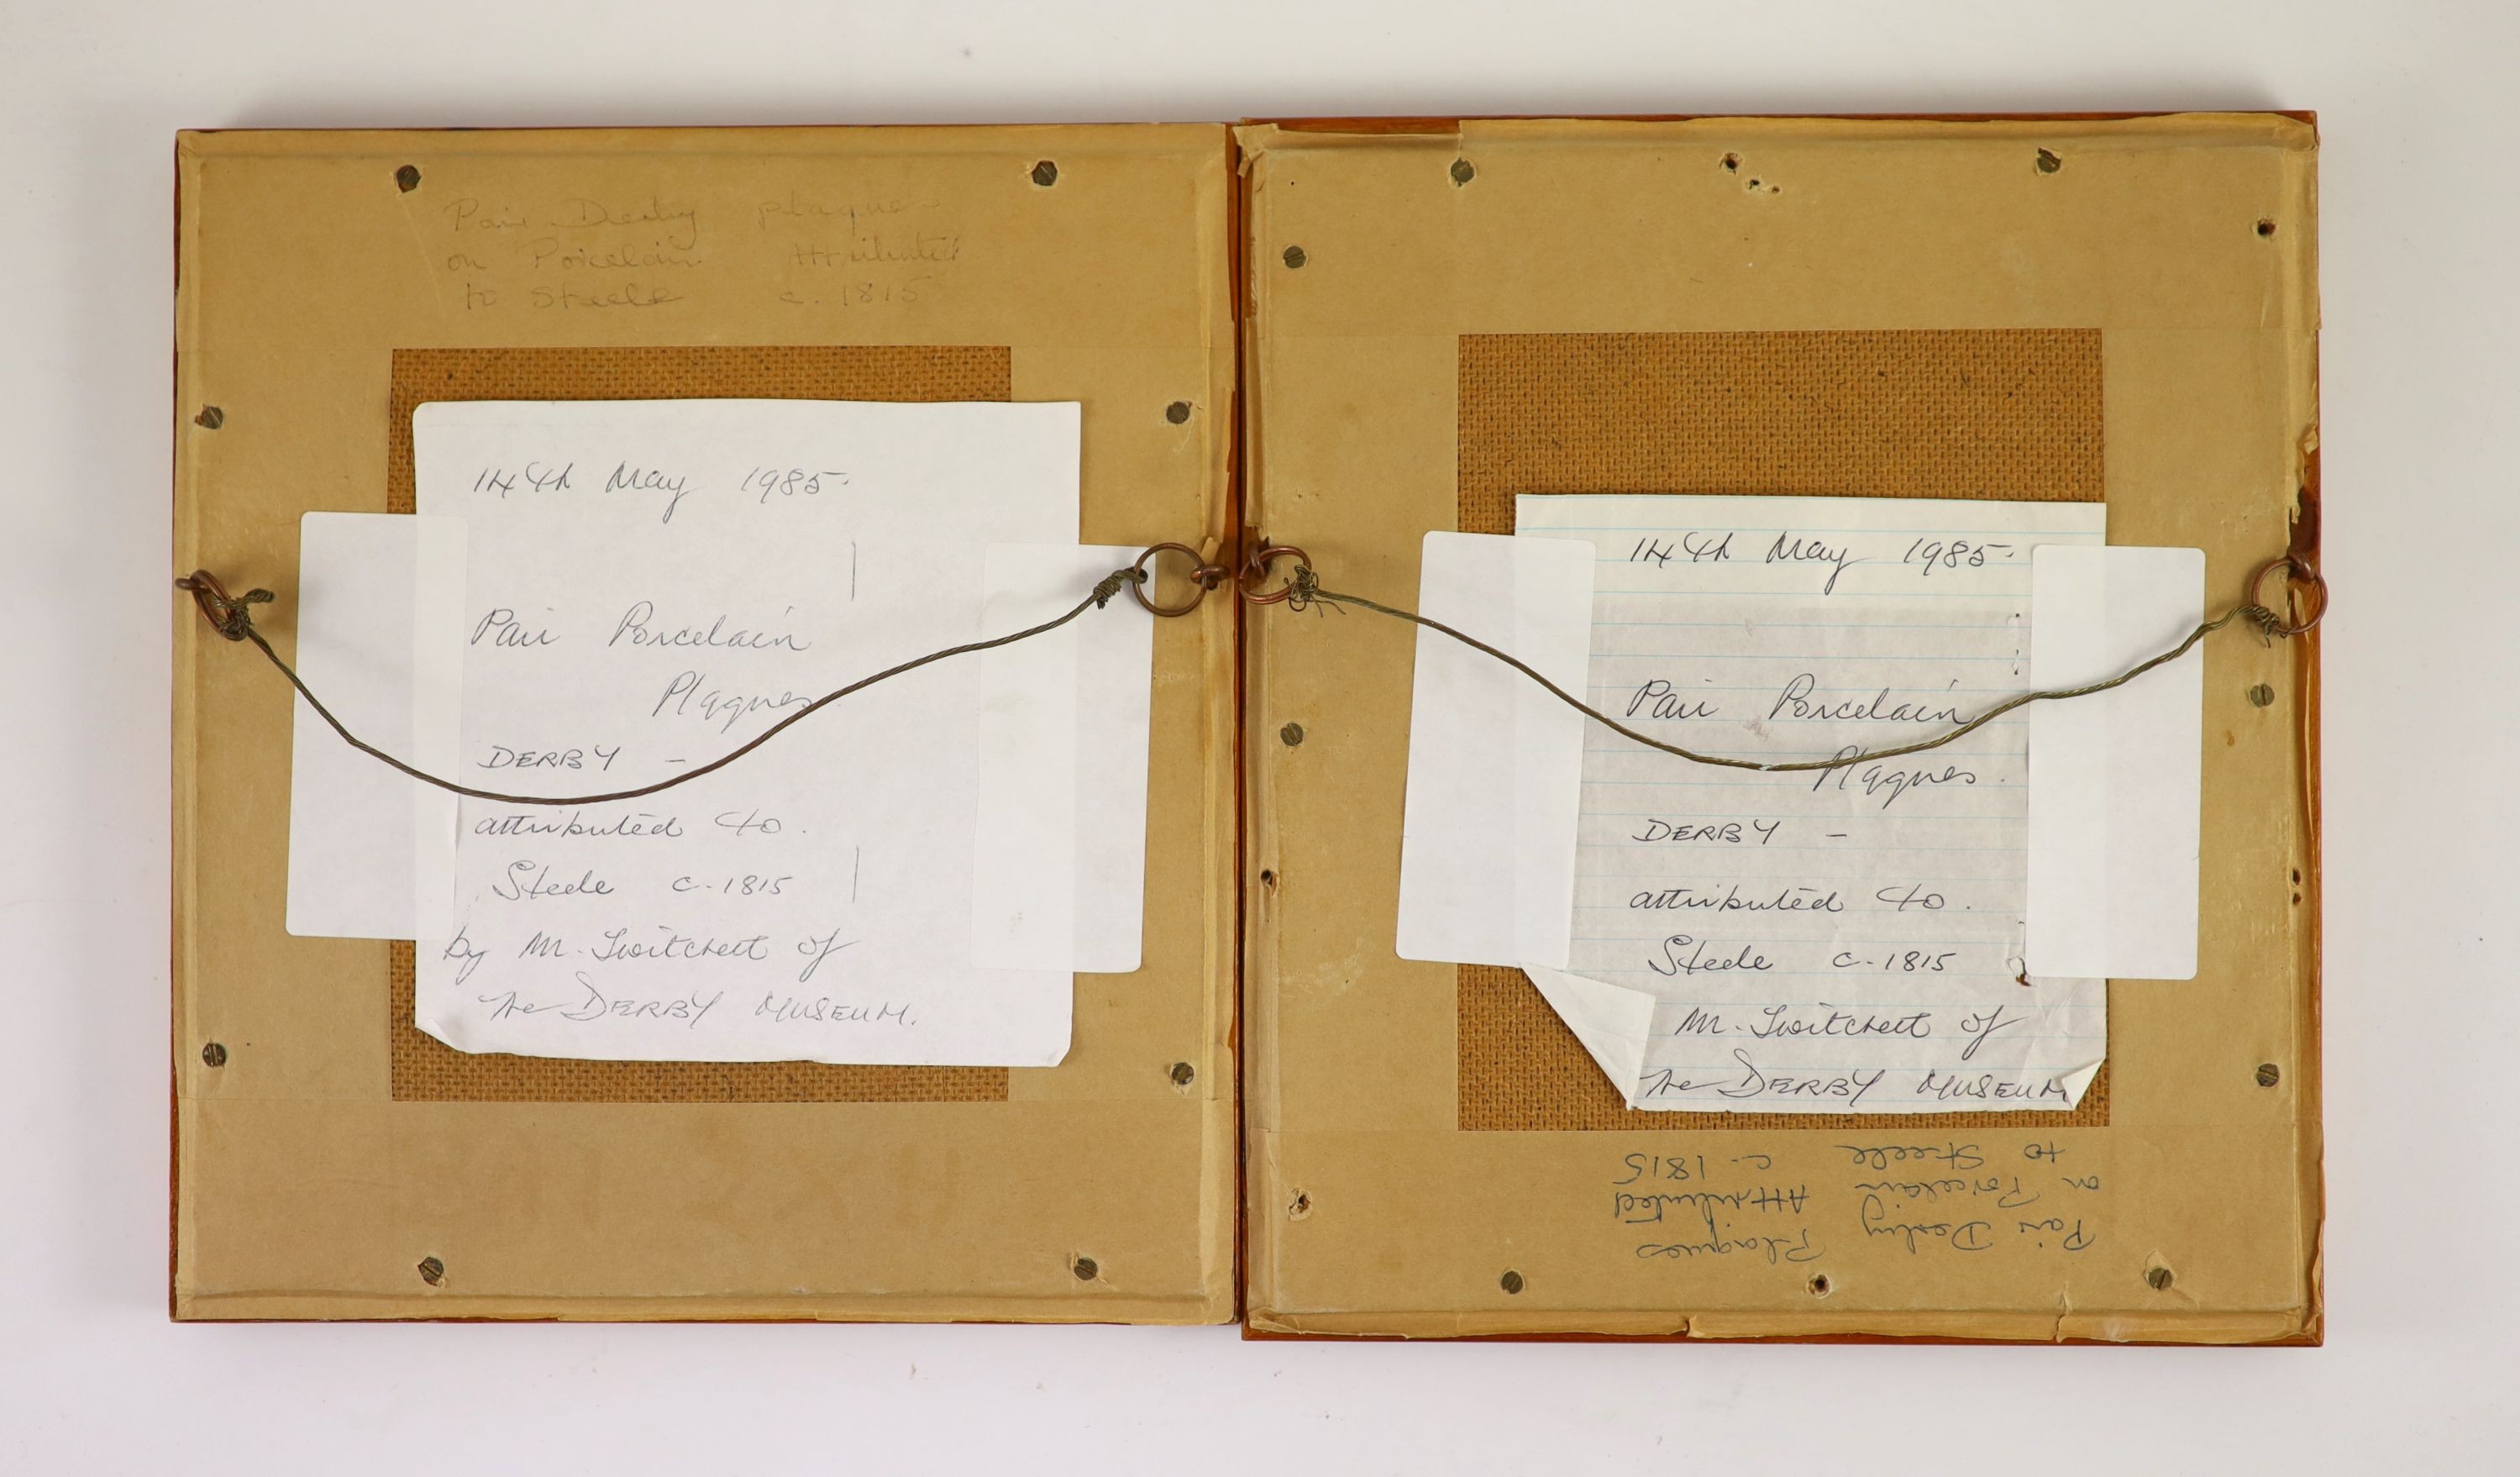 Pair Derby plaques
on Porcelain Attributed
to Steele c. 1815
14th May 1985.
Pair Porcelain
Plaques
DERBY -
attributed to.
Steele c. 1815
by M. Twitchett of
the DERBY MUSEUM.
14th May 1985.
Pair Porcelain
Plaques.
DERBY -
attributed to.
Steele c. 1815
M. Twitchett of
the DERBY MUSEUM
Pair Derby Plaques
on Porcelain Attributed
to Steele c. 1815